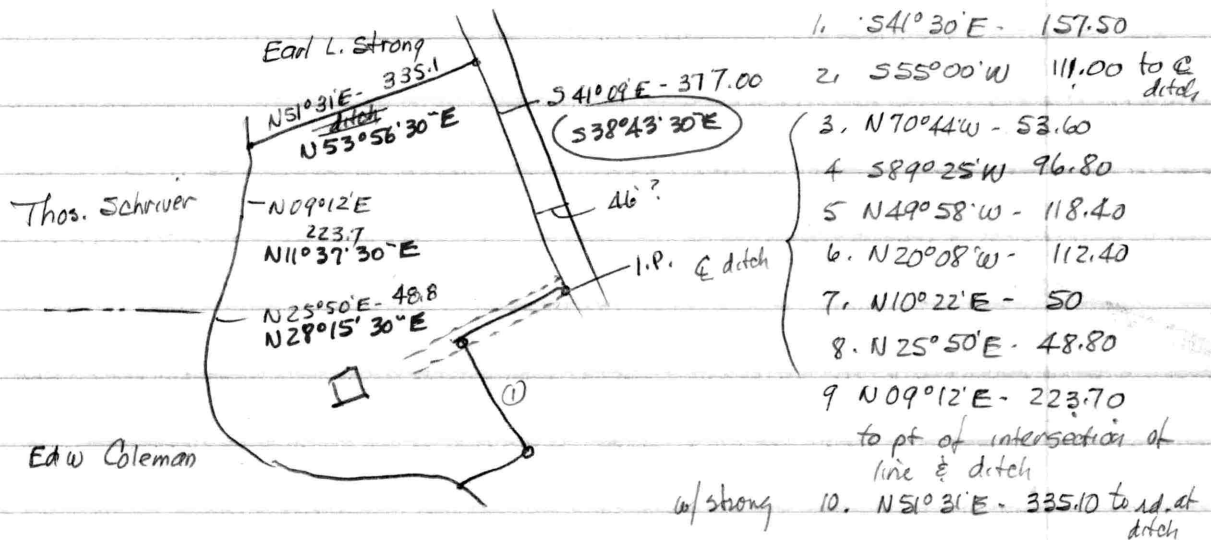 Earl L. Strong
N51°31'E - 335.1
ditch
N53°56'30"E
S41°09'E - 377.00
S38°43'30"E
46'?
I.P. ℄ ditch
Thos. Schriver
N09°12'E
223.7
N11°37'30"E
N25°50'E - 48.8
N28°15'30"E
①
Edw Coleman
1. S41°30'E - 157.50
2, S55°00'W 111.00 to ℄
ditch
3. N70°44'W - 53.60
4 S89°25'W 96.80
5 N49°58'W - 118.40
6. N20°08'W - 112.40
7. N10°22'E - 50
8. N25°50'E - 48.80
9 N09°12'E - 223.70
to pt of intersection of
line & ditch
w/ strong 10. N51°31'E - 335.10 to rd. at
ditch